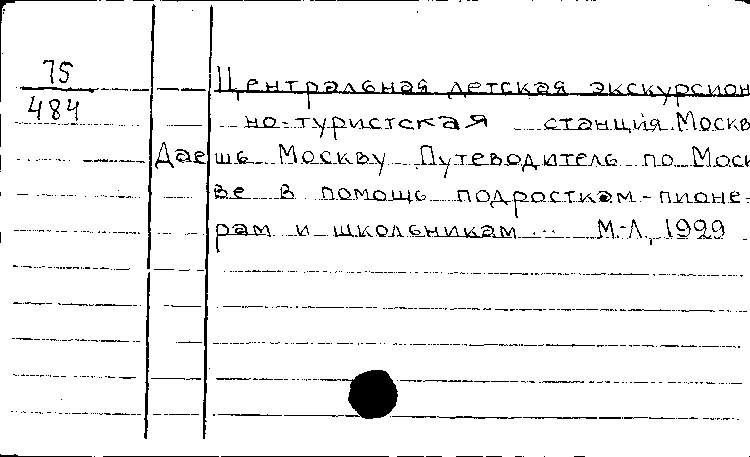 75
484
Центральная детская экскурсион
но-туристская станция. Москв
Даешь Москву. Путеводитель по Моск
ве в помощь подросткам-пионе-
рам и школьникам... М-Л, 1929